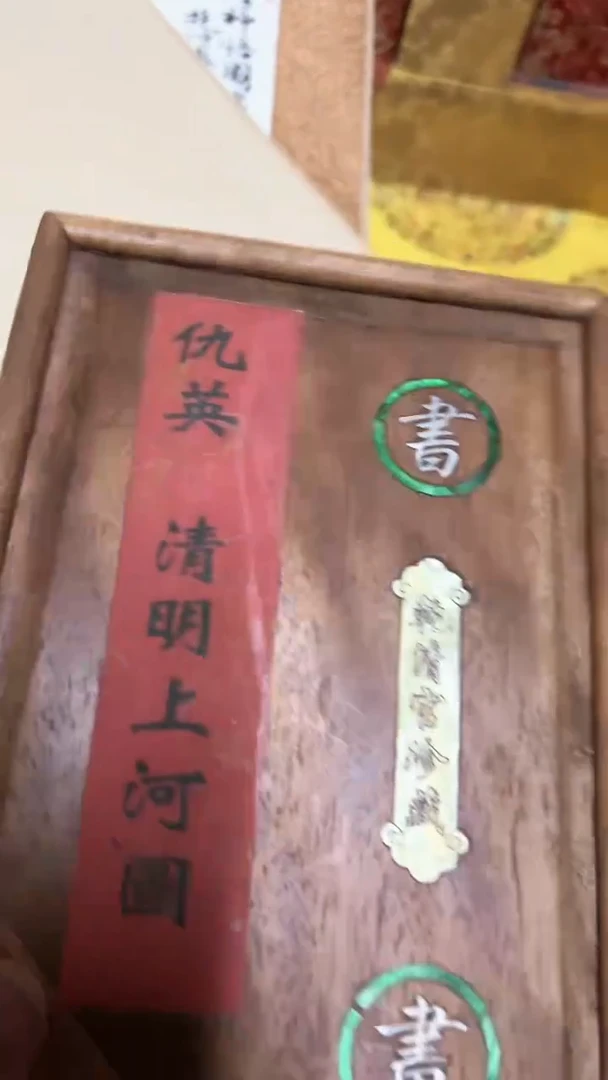 仇英 清明上河圖
書
乾清宮珍藏
書